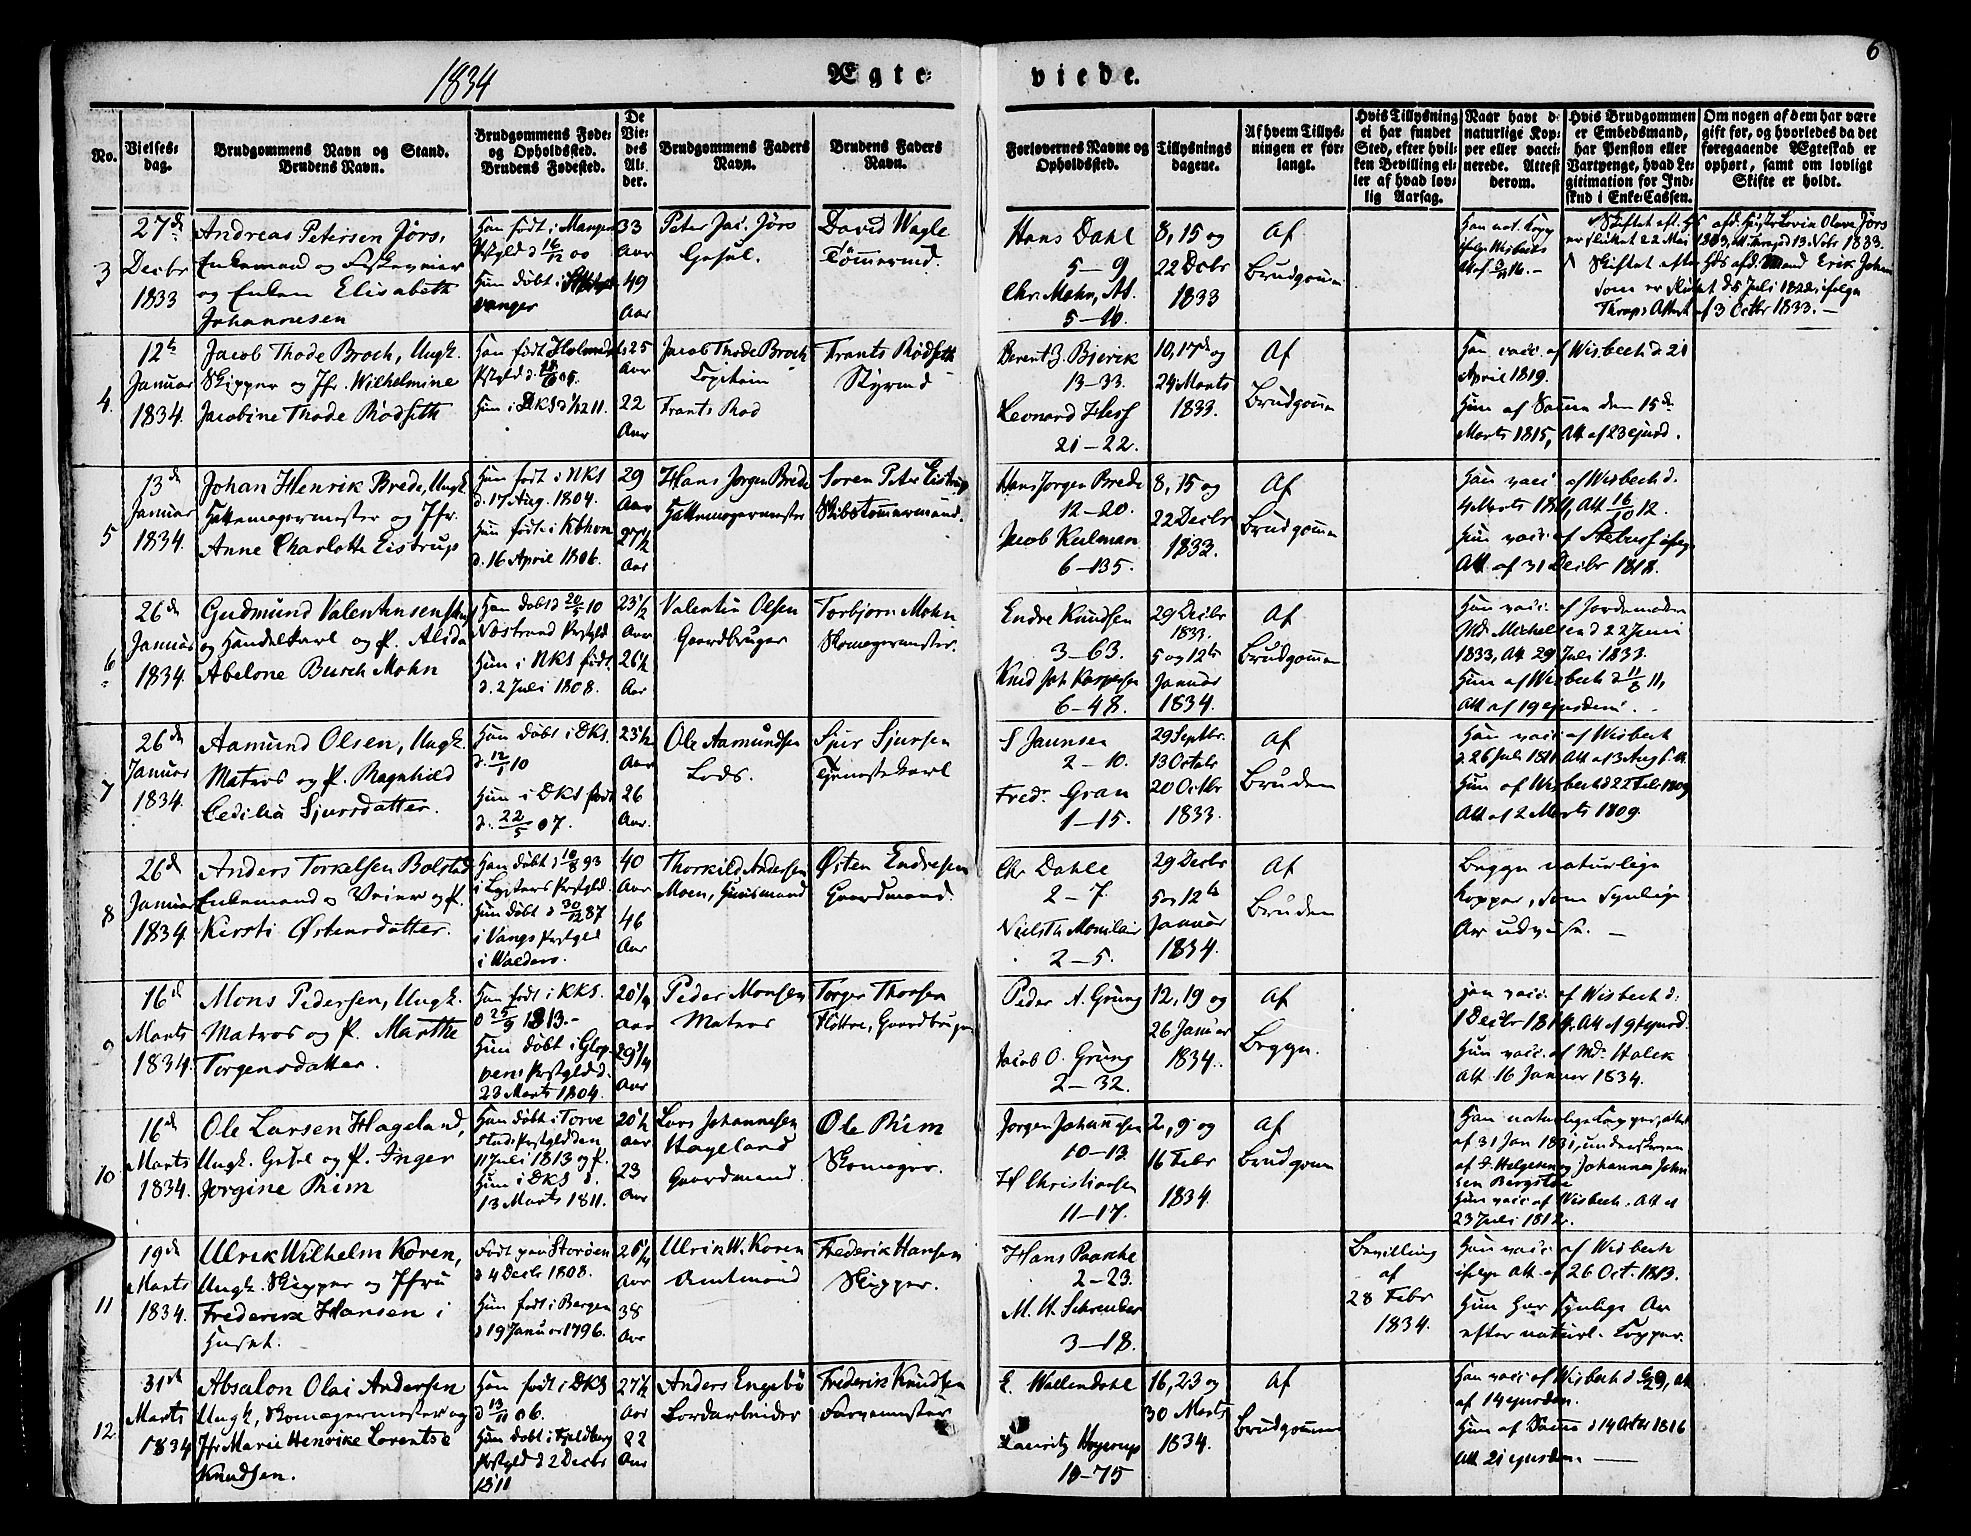 1834
Ægte
viede.
6
No.
Vielses-
dag.
Brudgommens Navn og Stand.
Brudens Navn.
Brudgommens Føde-
og Opholdssted.
Brudens Fødested.
De
Vie-
des
Al-
der.
Brudgommens Faders
Navn.
Brudens Faders
Navn.
Forlovernes Navne og
Opholdssted.
Tillysnings
dagene.
Af hvem Tillys-
ningen er for-
langt.
Hvis Tillysning
ei har fundet
Sted, efter hvil-
ken Bevilling el-
ler af hvad lov-
lig Aarsag.
Naar havt de
naturlige Kop-
per eller vacci-
nerede. Attest
derom.
Hvis Brudgommen
er Embedsmand,
har Pension eller
Vartpenge, hvad Le-
gitimation for Ind-
skud i Enke-Cassen.
Om nogen af dem har være
gift før, og hvorledes da det
foregaaende Ægteskab er
ophørt, samt om lovligt
Skifte er holdt.
3
27de
Decbr
1833
Andreas Petersen Jørs,
Enkemand og
og Enken Elisabeth
Johannesen
Han født i Manger
Prstgld d 16/12 00
Hun døbt i
vanger
33
Aar
49
Aar
Peter Jac. Jørs
Gesel.
David Wagle
Tømmermd.
Hans Dahl
5-9
Chr. Mohn,
5-16.
8, 15 og
22 Decbr
1833
Af
Brudgomm
Han nat. Kopp
ifølge Wisbechs
Att af
Skiftet eft. H
er sluttet 22 Mai 1833
13. Nobr 1833.
Skiftet efter Hds afd. Mand Erik Johan
som er sluttet d 5 Juli 1822 ifølge
Attest af 3 Octbr 1833.-
4.
12te
Januar
1834.
Jacob Thode Broch, Ungk.
Skipper og Jfr. Wilhelmine
Jacobine Thode Rødseth
Han født
Prstgld d.
Hun i DKS d 1/12 11.
25
Aar
22
Aar
Jacob Thode Broch
Capitain
Frants Rod
Frants Rødseth
Styrmd
Berent J. Bierik
13-33.
Leonard Hess
21-22.
10, 17de og
24 Marts
1833.
Af
Brudgomm
Han vacc. af Wisbech d. 21
April 1819.
Hun af Samme den 15de
Marts 1815, Att af 23 ejusd.
5
13de
Januar
1834.
Johan Henrik Brede, Ungk.
Hattemagermester og Jfr.
Anne Charlotte Eistrup
Han født i NKS
d. 17 Aug. 1804.
Hun født i Kbhvn
d. 16 April 1806.
29
Aar
27 1/2
Aar
Hans Jørgen Brede
Hattemagermester
Søren Peter Eistrup
Skibstømmermand.
Hans Jørgen Brede
12-20.
Jacob Kulman
6-135.
8, 15 og
22 Decbr
1833.
Af
Brudgomm
Han vacc. af Wisbech d.
4 Marts 1811, Att 16/10 12.
Hun vacc. af
Att af 31 Decbr 1818.
6
26de
Januar
1834.
Gudmund Valentinsen
og Handelskarl og P. Alida
Abelone Busch Mohn
Han døbt d 20/5 10
Næstrand Prstgld
Hun i NKS født
d. 2 Juli 1808.
23 1/2
Aar
26 1/2
Aar
Valentin Olsen
Gaardbruger
Torbjørn Mohn
Skomagermester.
Endre Knudsen
3-63.
Knud Joh Kaspersen
6-48.
29 Decbr
1833.
5 og 12te
Januar
1834.
Af
Brudgomm
Han vacc. af Jordemoder
Md. Michelsen d 22 Juni
1833, Att 29 Juli 1833.
Hun af Wisbech d 11/8 11,
Att af 19 ejusdem.
7
26de
Januar
1834.
Aamund Olsen, Ungk.
Matros og P. Ragnhild
Cecilia Sjursdatter.
Han døbt i DKS.
d. 12/1 10
Hun i DKS født
d. 22/5 07.
23 1/2
Aar
26
Aar.
Ole Aamundsen
Lods.
Sjur Sjursen
Tjenestekarl
S Jaunsen
2-10.
Fredr. Gran
1-15.
29 Septbr.
13 Octbr
20 Octbr
1833.
Af
Bruden
Han vacc. af Wisbech
d. 26 Juli 1811 Att af 13 Aug
Hun af Wisbech d 22 Febr 1809
Att af 2 Marts 1809.
8
26de
Januar
1834.
Anders Torkelsen Bolstad
Enkemand og Veier og P.
Kirsti Østensdatter.
Han døbt d 10/8 93
i Lysters Prstgld.
Hun døbt d 30/12 87
i Vangs Prstgld
i Walders.
40
Aar
46
Aar
Thorkild Andersen
Moen, Huusmand
Østen Endresen
Gaardmand.
Chr Dahle
2-7.
Niels Th Monclair
2-5.
29 Decbr
5 og 12te
Januar
1834.
Af
Bruden
Begge naturlige
Kopper, som synlige
Ar udviser. -
9
16de
Marts
1834.
Mons Pedersen, Ungk.
Matros og P. Marthe
Torgersdatter.
Han født i KKS.
d 25/9 1813.-
Hun døbt i Glop-
pens Prstgld d.
23 Marts 1804.
20 1/4
Aar
29 3/4
Aar
Peder Monsen
Matros
Torger Thorsen
Gaardbruger
Peder A. Grung
Jacob O. Grung
2-32.
12, 19 og
26 Januar
1834.
Af
Begge.
Han vacc. af Wisbech d.
1 Decbr 1814. Att af 9 ejusd.
Hun vacc. af Md. Holck
Att. 16 Januar 1834.
10
16de
Marts
1834.
Ole Larsen Hageland,
Ungk. Gesel og P. Inger
Jørgine Riim
Han døbt i Torve
stads Prstgld den
11 Juli 1813 og P.
Hun i DKS d.
13 Marts 1811.
20 1/2
Aar
23
Aar
Lars Johannesen
Hageland
Gaardmand.
Ole Riim
Skomager.
Jørgen Johannsen
10-13.
H Christiansen
11-17.
2, 9 og
16 Febr
1834.
Af
Brudgomm
Han naturlige Kopper, attest
af 31 Jan 1831, underskreven
af J. Helgesen og Johannes John
sen Bergstøe
Hun vacc. af Wisbech. Att af
23 Juli 1812.
11
19de
Marts
1834.
Ulrik Wilhelm Koren,
Ungk. Skipper og Jfru
Frederikke Hansen i
Huset.
Født paa Storøen
d 4 Decbr 1808.
Hun født i Bergen
d 19 Januar 1796.
25 1/4
Aar
38
Aar
Ulrik W. Koren
Amtmand
Frederik Hansen
Skipper.
Hans Paasche
2-23.
M. W. Schreuder
3-18.
Bevilling
af
28 Febr
1834.
Han vacc. af Wisbech
ifølge Att. af 26 Oct. 1813.
Hun har synlige Ar
efter naturl. Kopper.
12
31te
Marts
1834
Absalon Olai Andersen
Ungk, Skomagermester og
Jfr Marie Henrikke Lorentse
Knudsen.
Han født i DKS
d 13/11 06.
Hun døbt i Fjeldberg
Prstgld d 2 Decbr
1811
27 1/2
Aar
22
Aar
Anders Engebø
Jordarbeider
Frederik Knudsen
Farvemester
E. Wallendahl
Lauritz Høyerup
10-75
16, 23 og
30 Marts
1834.
Af
Brudgomm
Han vacc. af Wisbech d
af 14 ejusdem.
Hun af Samme d 14 Octbr 1816
Att 21 ejusdem.